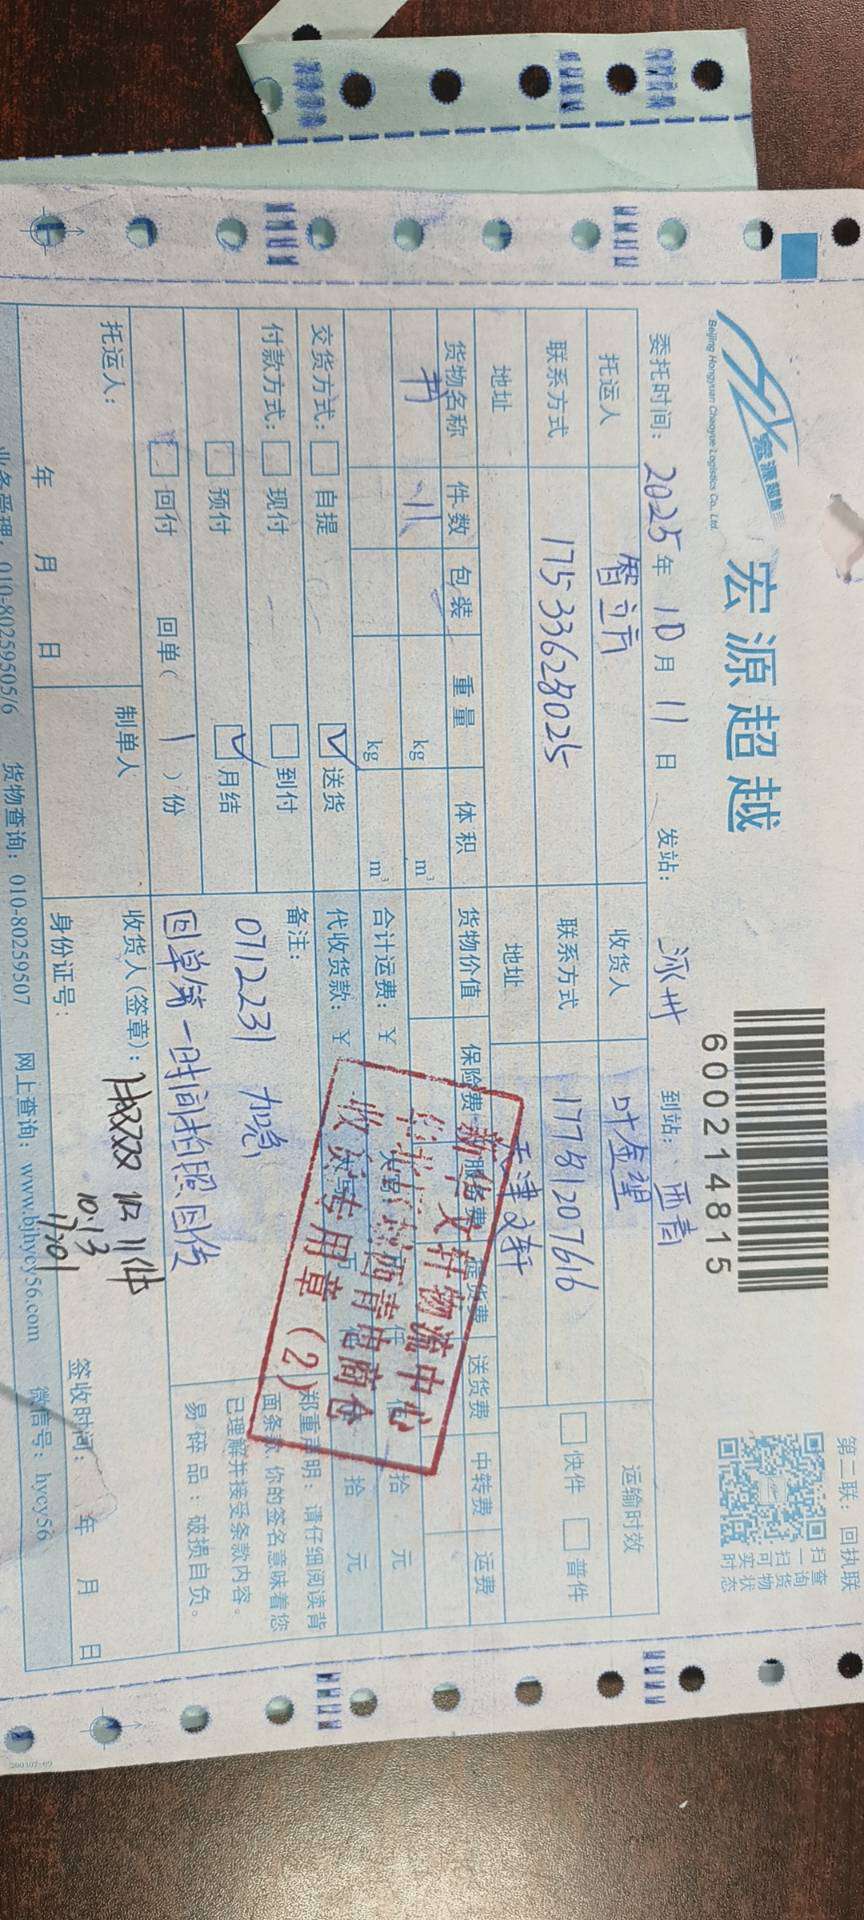 第二联：回执联
宏源超越
Beijing Hongyuan Chaoyue Logistics Co., Ltd.
宏源超越
600214815
扫一扫
查询货物
可实时状态
委托时间：2025年10月11日 发站：涿州 到站：西青
托运人 智立方 收货人 叶金望 运输时效
联系方式 17533628025 联系方式 17781207616 □快件 □普件
地址 地址 天津文轩
货物名称 件数 包装 重量 体积 货物价值 保险费 服务费 提货费 送货费 中转费 运费
书 11 kg m³
kg m³ 合计运费：￥ 大写 万 仟 佰 拾 元
交货方式：□自提 ☑送货 代收货款：￥ 大写 万 仟 佰 拾 元
付款方式：□现付 □到付 备注：
□预付 ☑月结 0712231 加急
□回付 回单（1）份 回单第一时间拍照回传
郑重声明：请仔细阅读背
面条款，你的签名意味着您
已理解并接受条款内容。
易碎品：破损自负。
新华文轩物流中心
西青电商仓
收货专用章（2）
托运人： 制单人 收货人（签章）： 収 11件
10.13
年 月 日 身份证号： 签收时间： 年 月 日
业务受理：010-80259505/6 货物查询：010-80259507 网上查询：www.bjhycy56.com 微信号：hycy56